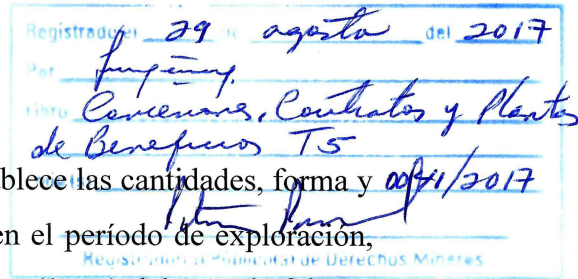 Registrado el 29 de agosto del 2017
Por
Libro Concesiones, Contratos y Plantas
de Beneficios T5
blece las cantidades, forma y
/2017
en el período de exploración,
Registrador(a) Público(a) de Derechos Mineros